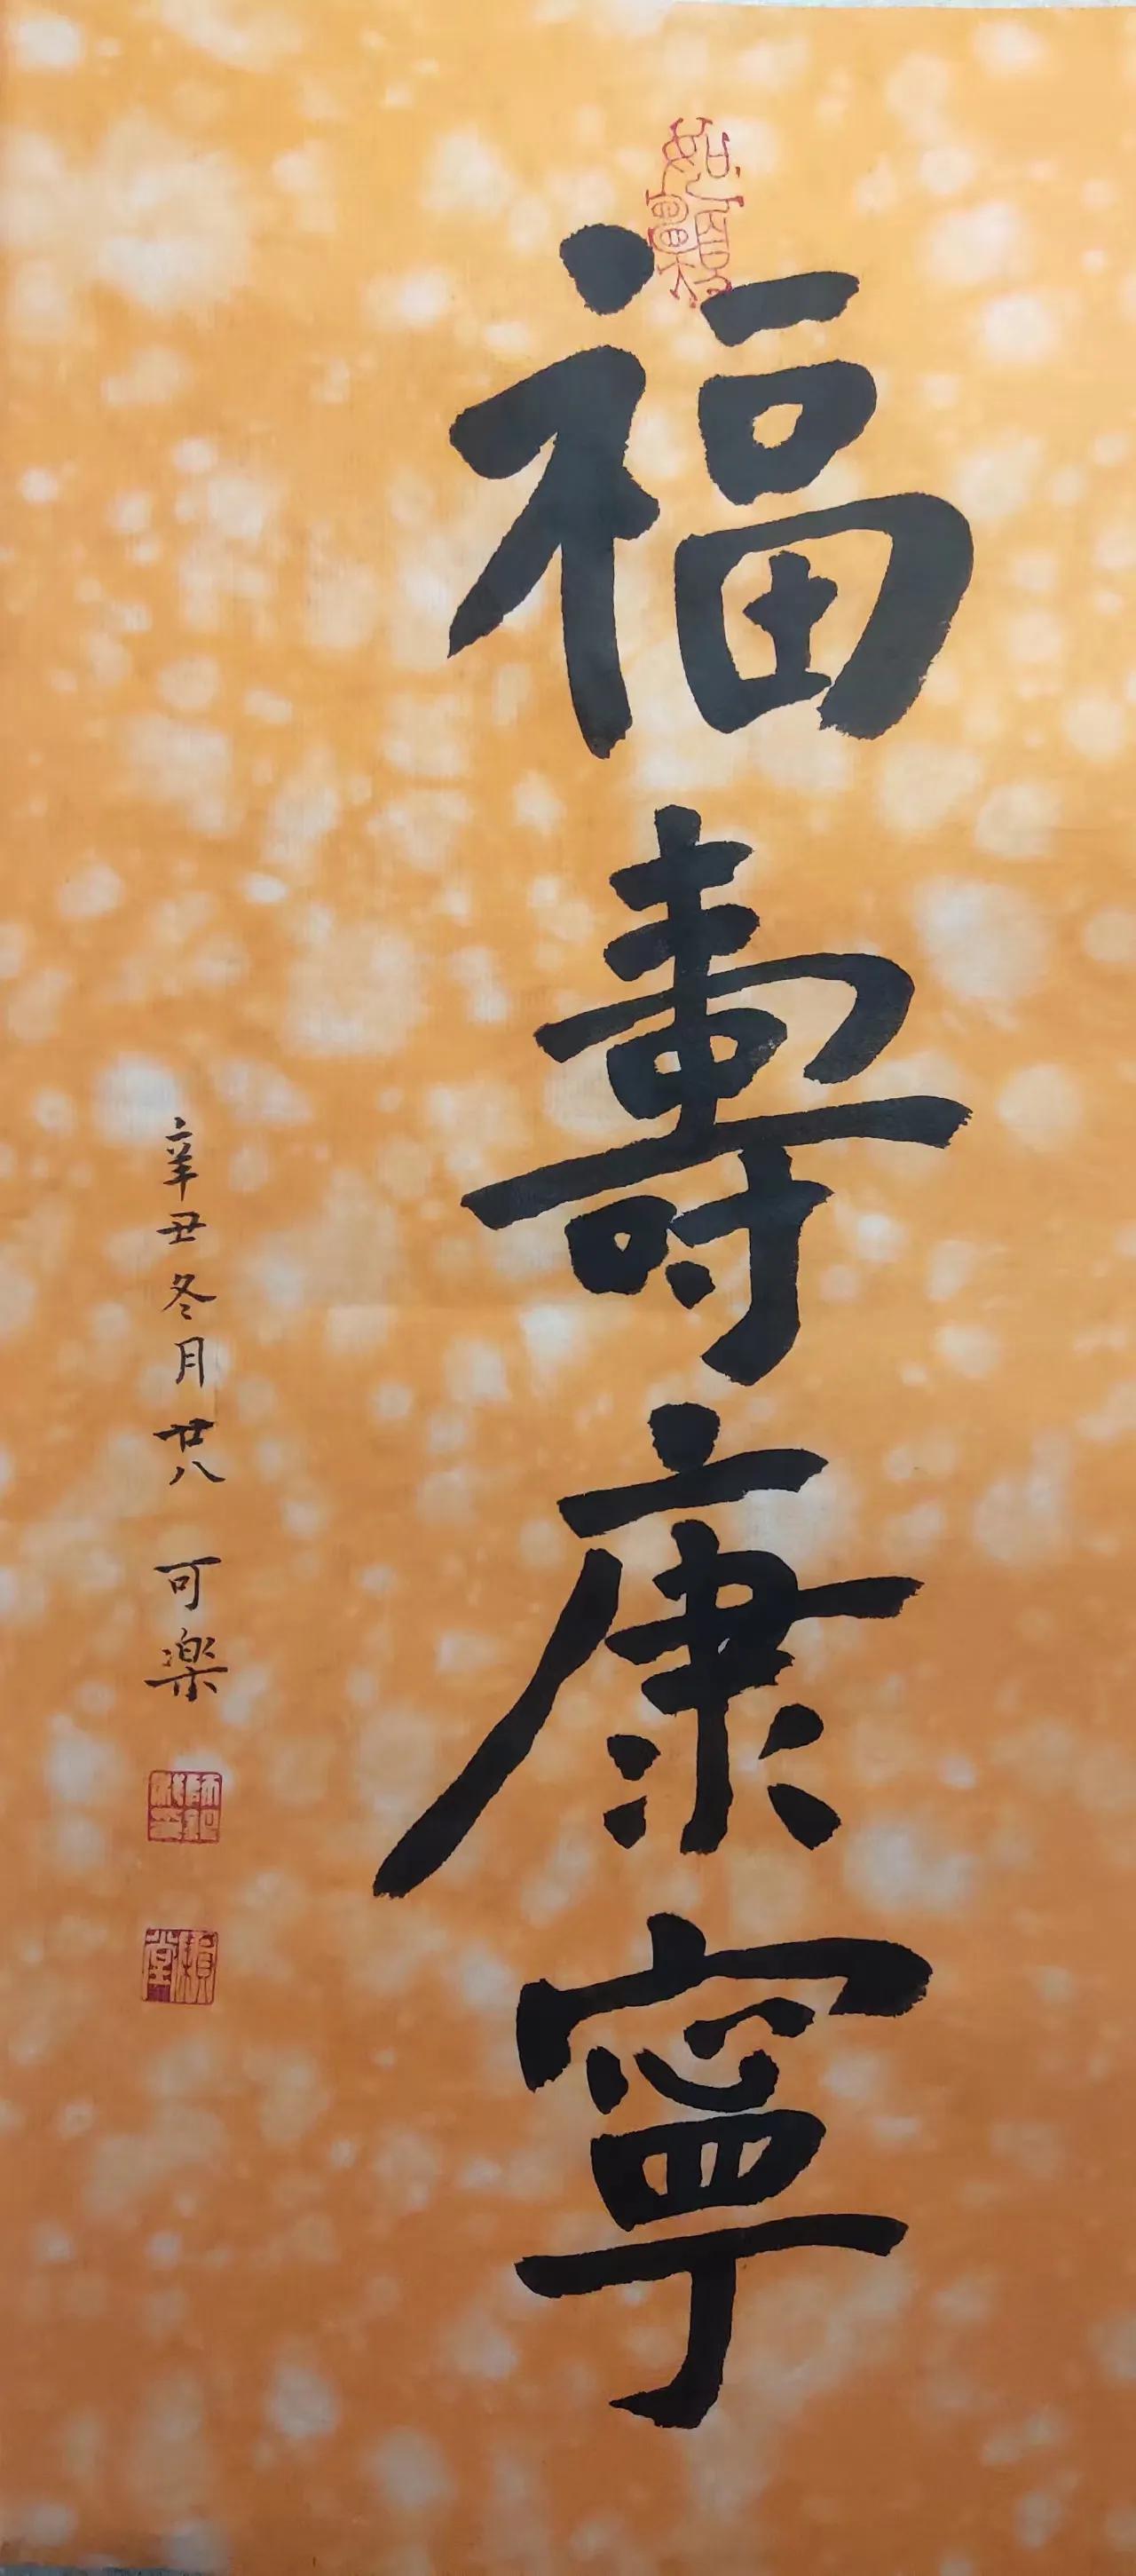 福壽康寧
辛丑冬月廿八 可楽